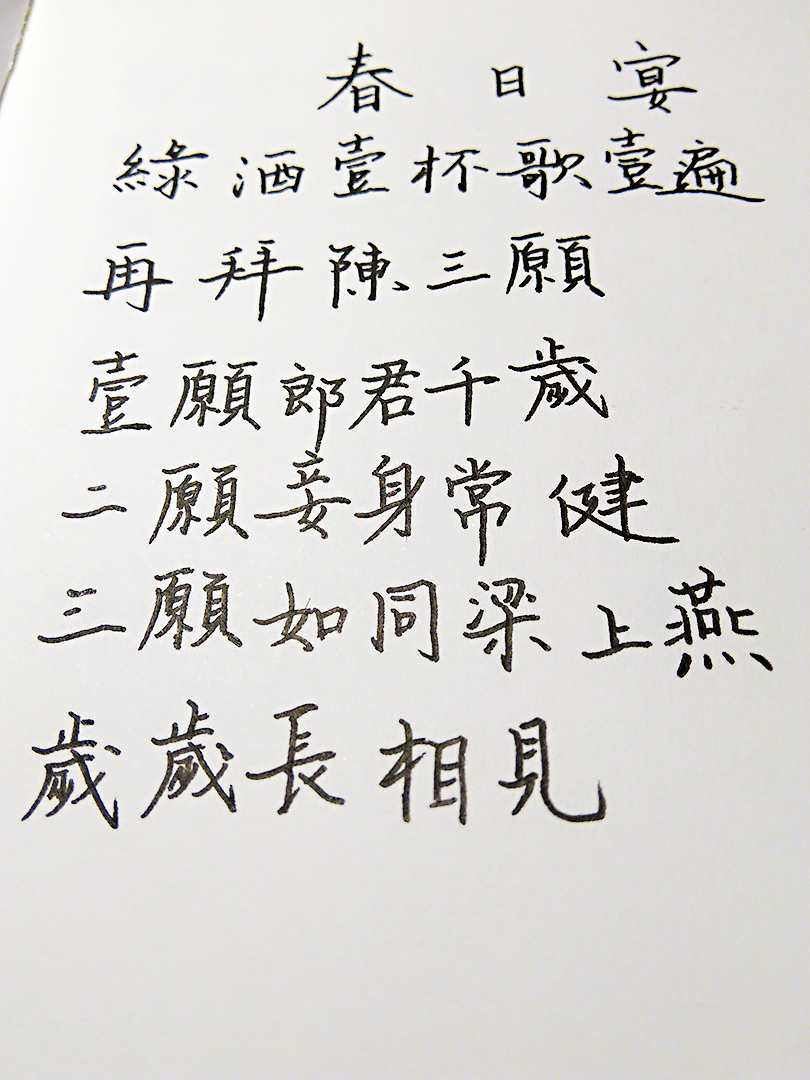 春日宴
綠酒壹杯歌壹遍
再拜陳三願
壹願郎君千歲
二願妾身常健
三願如同梁上燕
歲歲長相見